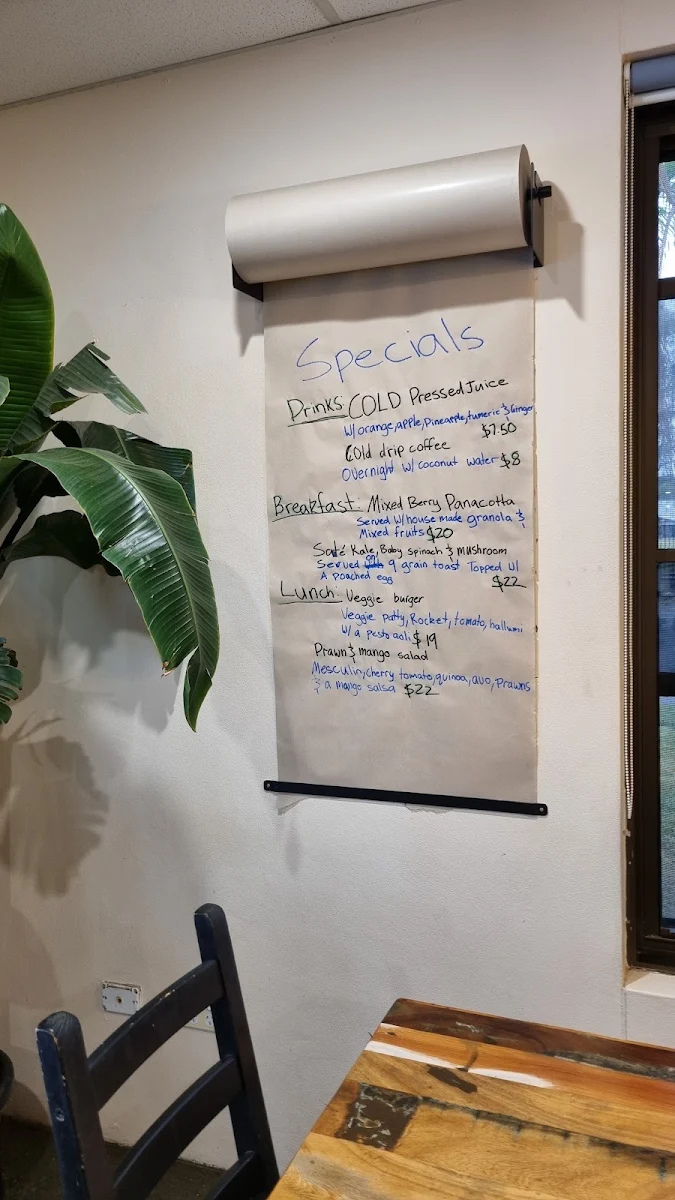 Specials
Drinks: COLD Pressed Juice
W/ orange, apple, Pineapple, tumeric & Ginger
$7.50
Cold drip coffee
Overnight W/ coconut water $8
Breakfast: Mixed Berry Panacotta
Served W/ house made granola &
Mixed fruits $20
Saté Kale, Baby spinach & mushroom
Served 9 grain toast Topped W/
A poached egg $22
Lunch: Veggie burger
Veggie patty, Rocket, tomato, hallumi
W/ a pesto aoli $19
Prawn & mango salad
Mesculin, cherry tomato, quinoa, avo, Prawns
& a mango salsa $22